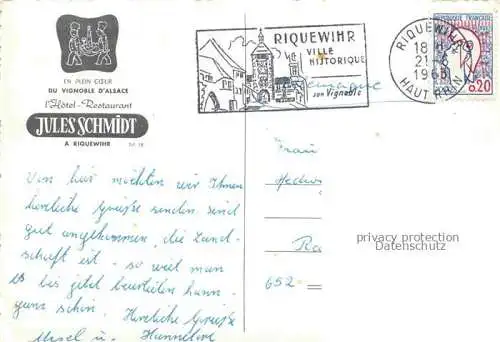 EN PLEIN CŒUR
DU VIGNOBLE D'ALSACE
l'Hôtel-Restaurant
JULES SCHMIDT
A RIQUEWIHR
RIQUEWIHR
VILLE
HISTORIQUE
son Vignoble
RIQUEWIHR
18 H
21-6
1963
HAUT RHIN
REPUBLIQUE FRANÇAISE
0,20
Von hier möchten wir Ihnen
herzliche Grüße senden. Sind
gut angekommen, die Land-
schaft ist - so weil man
es bis jetzt beurteilen kann -
ganz schön. Herzliche Grüße
Ursel u. Hannelore
Frau
Hedwi
Ra
652
privacy protection
Datenschutz